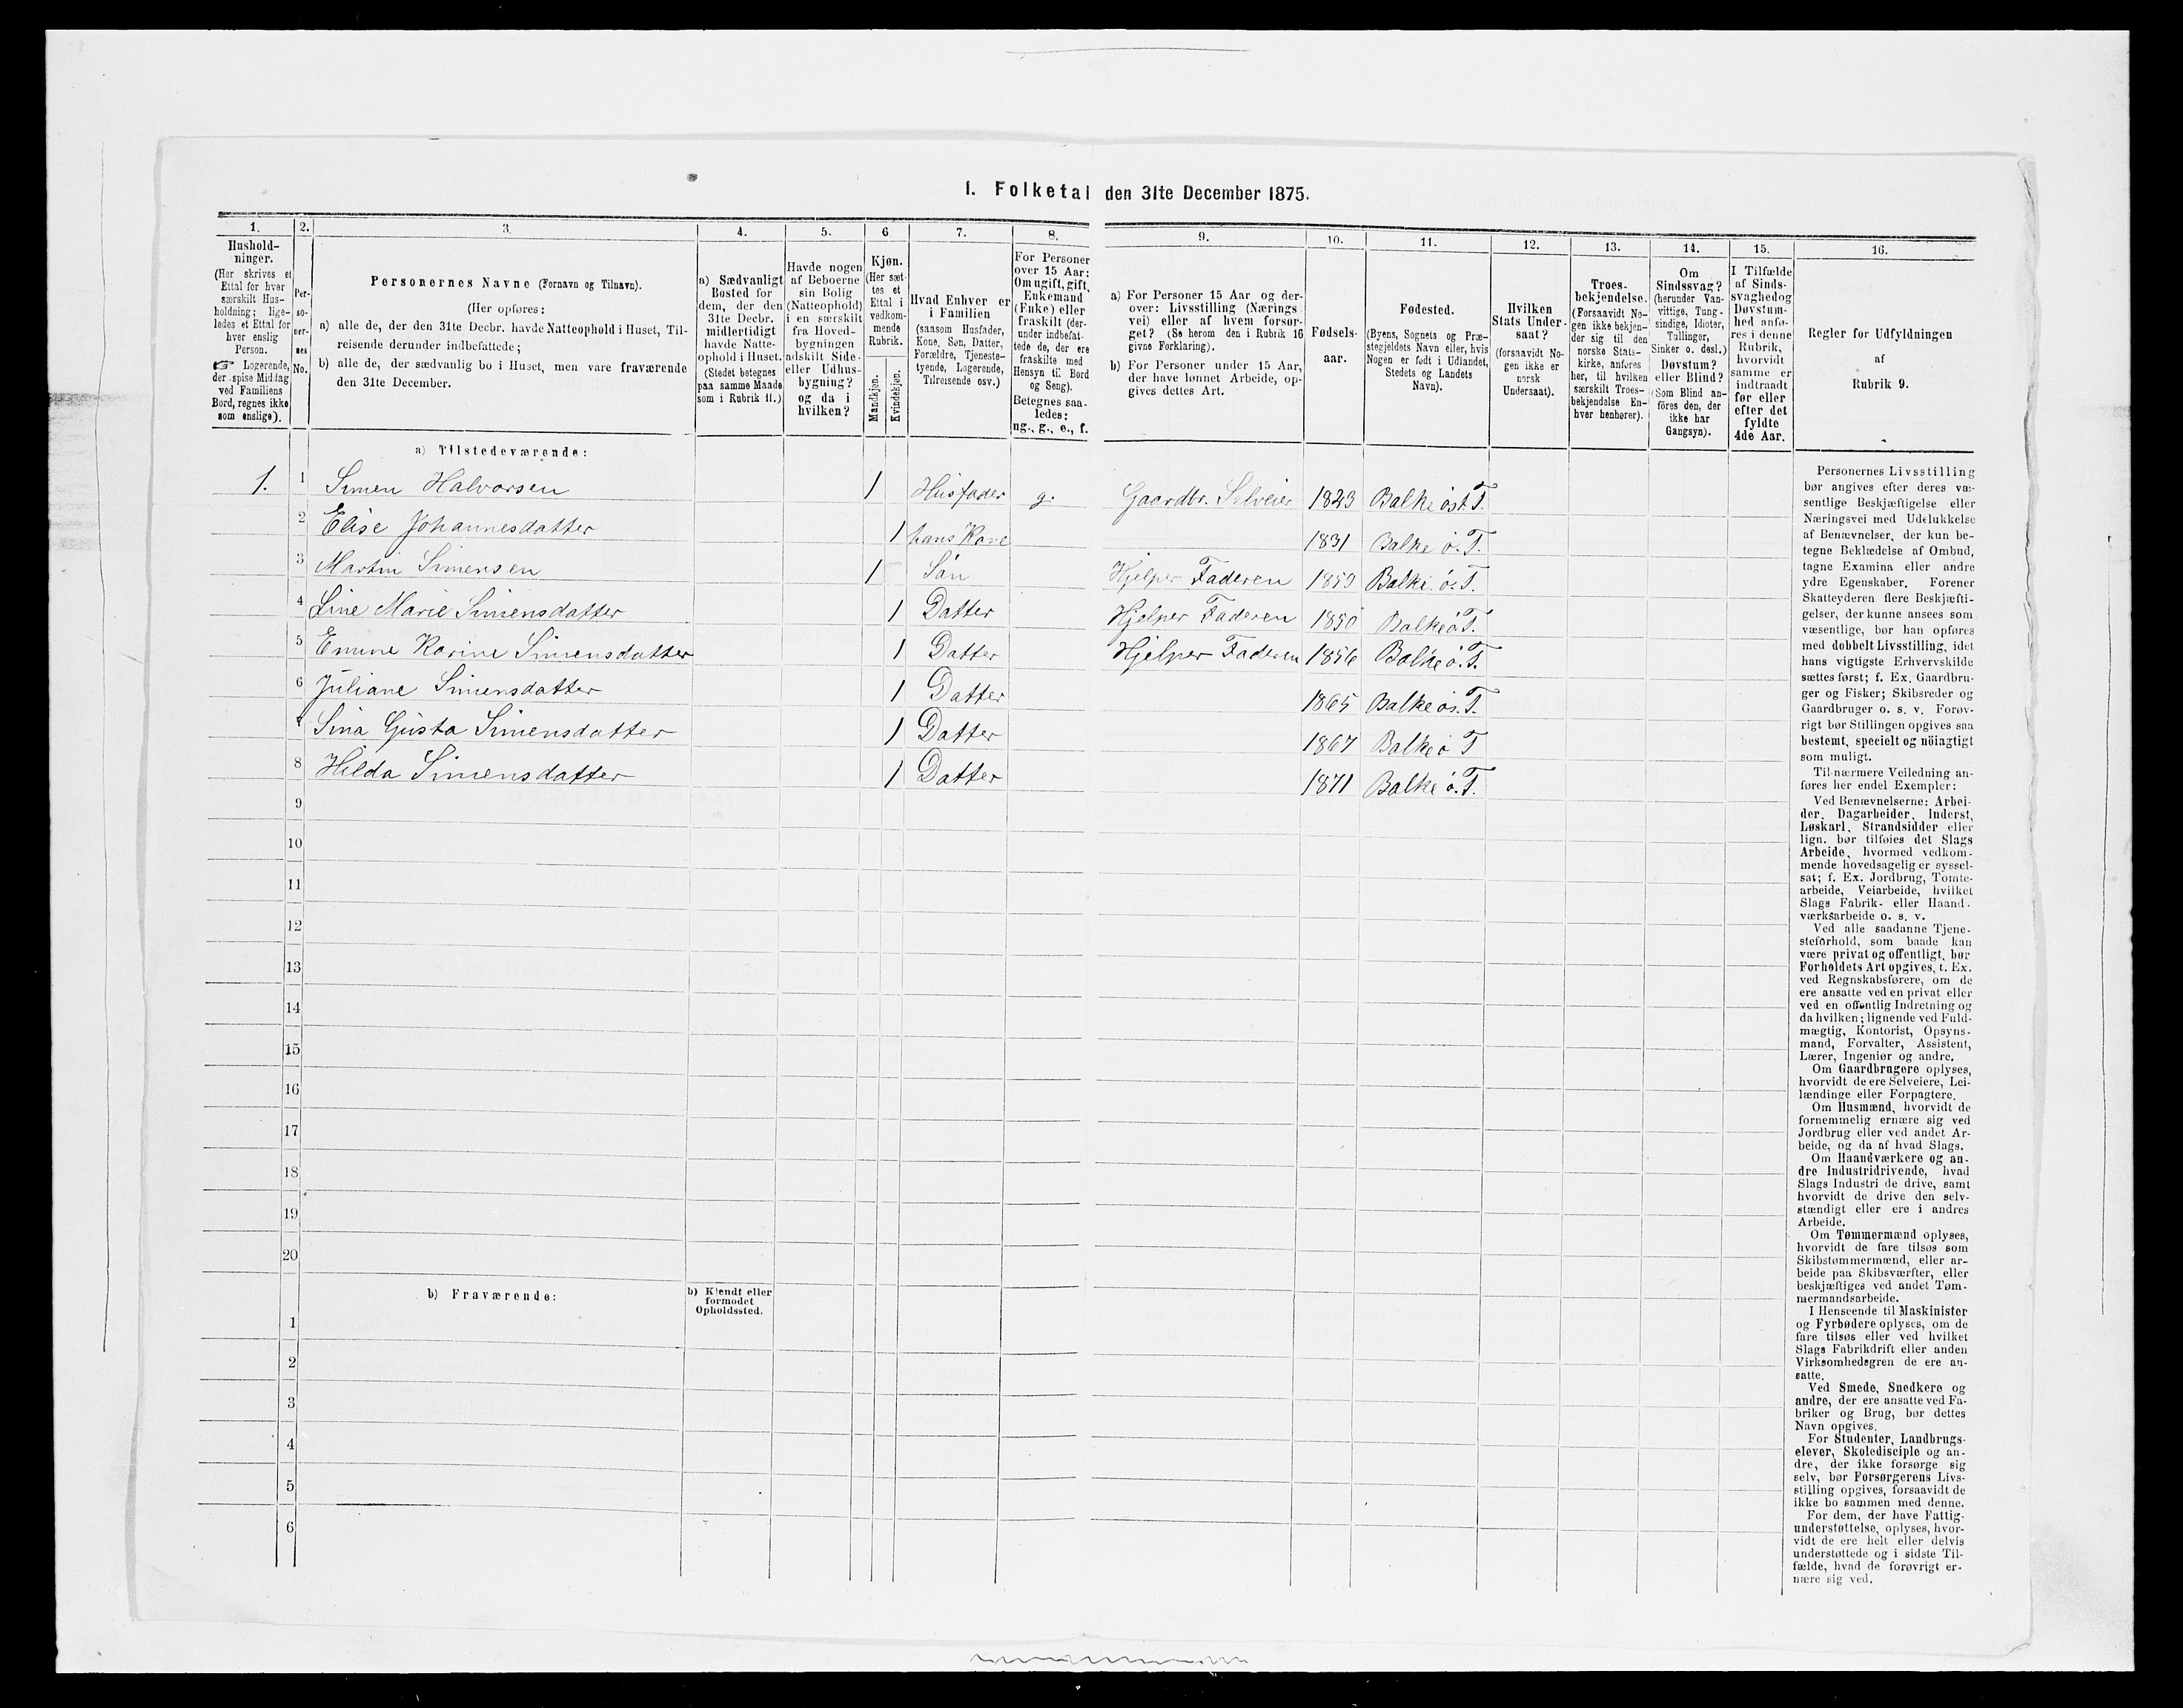 1. Folketal den 31te December 1875.
1.
2.
3.
4.
5.
6
7.
8.
9.
10.
11.
12.
13.
14.
15.
16.
Hushold-
ninger.
(Her skrives et
Ettal for hver
særskilt Hus-
holdning; lige-
ledes et Ettal for
hver enslig
Person.
☞ Logerende,
der spise Middag
ved Familiens
Bord, regnes ikke
som enslige).
Per-
so-
ner-
nes
No.
Personernes Navne (Fornavn og Tilnavn).
(Her opføres:
a) alle de, der den 31te Decbr. havde Natteophold i Huset, Til-
reisende derunder indbefattede;
b) alle de, der sædvanlig bo i Huset, men vare fraværende
den 31te December.
a) Sædvanligt
Bosted for
dem, der den
31te Decbr.
midlertidigt
havde Natte-
ophold i Huset.
(Stedet betegnes
paa samme Maade
som i Rubrik 11.)
Havde nogen
af Beboerne
sin Bolig
(Natteophold)
i en særskilt
fra Hoved-
bygningen
adskilt Side-
eller Udhus-
bygning?
og da i
hvilken?
Kjøn.
(Her sæt-
tes et
Ettal i
vedkom-
mende
Rubrik.
Mandkjøn.
Kvindekjøn.
Hvad Enhver er
i Familien
(saasom Husfader,
Kone, Søn, Datter,
Forældre, Tjeneste-
tyende, Logerende,
Tilreisende osv.)
For Personer
over 15 Aar:
Om ugift, gift,
Enkemand
(Enke) eller
fraskilt (der-
under indbefat-
tede de, der ere
fraskilte med
Hensyn til Bord
og Seng).
Betegnes saa-
ledes:
ug., g., e., f.
a) For Personer 15 Aar og der-
over: Livsstilling (Nærings
vei) eller af hvem forsør-
get? (Se herom den i Rubrik 16
givne Forklaring).
b) For Personer under 15 Aar,
der have lønnet Arbeide, op-
gives dettes Art.
Fødsels-
aar.
Fødested.
(Byens, Sognets og Præ-
stegjeldets Navn eller, hvis
Nogen er født i Udlandet,
Stedets og Landets
Navn).
Hvilken
Stats Under-
saat?
(forsaavidt No-
gen ikke er
norsk
Undersaat).
Troes-
bekjendelse.
(Forsaavidt No-
gen ikke bekjen-
der sig til den
norske Stats-
kirke, anføres
her, til hvilken
særskilt Troes-
bekjendelse En-
hver henhører).
Om
Sindssvag?
(herunder Van-
vittige, Tung-
sindige, Idioter,
Tullinger,
Sinker o. desl.)
Døvstum?
eller Blind?
(Som Blind an-
föres den, der
ikke har
Gangsyn).
I Tilfælde
af Sinds-
svaghed og
Døvstum-
hed anfø-
res i denne
Rubrik,
hvorvidt
samme er
indtraadt
før eller
efter det
fyldte
4de Aar.
Regler for Udfyldningen
af
Rubrik 9.
a) Tilstedeværende:
1. 1 Simen Halvorsen 1 Husfader g. Gaardbr. Selveier 1823 Balke øst. T.
2 Elise Johannesdatter 1 hans Kone 1831 Balke ø. T.
3 Martin Simensen 1 Søn Hjelper Faderen 1859 Balke øs. T.
4 Line Marie Simensdatter 1 Datter Hjelper Faderen 1850 Balke ø T.
5 Emine Karine Simensdatter 1 Datter Hjelper Faderen 1856 Balke ø. T.
6 Juliane Simensdatter 1 Datter 1865 Balke øs. T.
7 Sina Gusta Simensdatter 1 Datter 1867 Balke ø T
8 Hilda Simensdatter 1 Datter 1871 Balke ø. T.
9
10
11
12
13
14
15
16
17
18
19
20
b) Fraværende:
b) Kjendt eller
formodet
Opholdssted.
1
2
3
4
5
6
Personernes Livsstilling
bør angives efter deres væ-
sentlige Beskjæftigelse eller
Næringsvei med Udelukkelse
af Benævnelser, der kun be-
tegne Beklædelse af Ombud,
tagne Examina eller andre
ydre Egenskaber. Forener
Skatteyderen flere Beskjæfti-
gelser, der kunne ansees som
væsentlige, bør han opføres
med dobbelt Livsstilling, idet
hans vigtigste Erhvervskilde
sættes først; f. Ex. Gaardbru-
ger og Fisker; Skibsreder og
Gaardbruger o. s. v. Forøv-
rigt bør Stillingen opgives saa
bestemt, specielt og nöiagtigt
som muligt.
Til nærmere Veiledning an-
føres her endel Exempler:
Ved Benævnelserne: Arbei-
der, Dagarbeider, Inderst,
Løskarl, Strandsidder eller
lign. bør tilføies det Slags
Arbeide, hvormed vedkom-
mende hovedsagelig er syssel-
sat; f. Ex. Jordbrug, Tomte-
arbeide, Veiarbeide, hvilket
Slags Fabrik- eller Haand-
værksarbeide o. s. v.
Ved alle saadanne Tjene-
steforhold, som baade kan
være privat og offentligt, bør
Forholdets Art opgives, t. Ex.
ved Regnskabsførere, om de
ere ansatte ved en privat eller
ved en offentlig Indretning og
da hvilken; lignende ved Fuld-
mægtig, Kontorist, Opsyns-
mand, Forvalter, Assistent,
Lærer, Ingeniør og andre.
Om Gaardbrugere oplyses,
hvorvidt de ere Selveiere, Lei-
lændinge eller Forpagtere.
Om Husmænd, hvorvidt de
fornemmelig ernære sig ved
Jordbrug eller ved andet Ar-
beide, og da af hvad Slags.
Om Haandværkere og an-
dre Industridrivende, hvad
Slags Industri de drive, samt
hvorvidt de drive den selv-
stændigt eller ere i andres
Arbeide.
Om Tømmermænd oplyses,
hvorvidt de fare tilsøs som
Skibstømmermænd, eller ar-
beide paa Skibsværfter, eller
beskjæftiges ved andet Tøm-
mermandsarbeide.
I Henseende til Maskinister
og Fyrbødere oplyses, om de
fare tilsøs eller ved hvilket
Slags Fabrikdrift eller anden
Virksomhedsgren de ere an-
satte.
Ved Smede, Snedkere og
andre, der ere ansatte ved Fa-
briker og Brug, bør dettes
Navn opgives.
For Studenter, Landbrugs-
elever, Skoledisciple og an-
dre, der ikke forsørge sig
selv, bør Forsørgerens Livs-
stilling opgives, forsaavidt de
ikke bo sammen med denne.
For dem, der have Fattig-
understøttelse, oplyses, hvor-
vidt de ere helt eller delvis
understøttede og i sidste Til-
fælde, hvad de forøvrigt er-
nære sig ved.